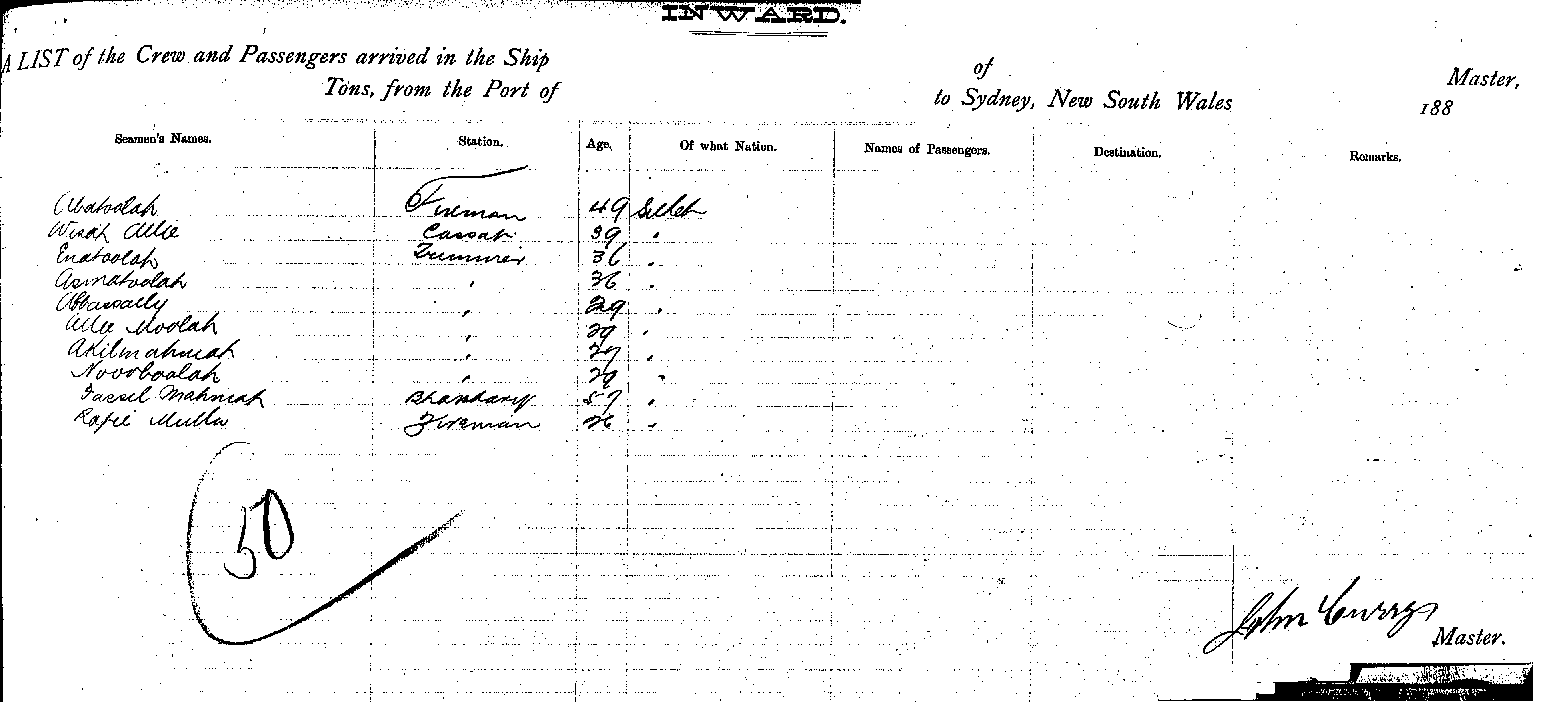 INWARD.
A LIST of the Crew and Passengers arrived in the Ship of Master,
Tons, from the Port of to Sydney, New South Wales 188
Seamen's Names. Station. Age. Of what Nation. Names of Passengers. Destination. Remarks.
Abatoolah Fireman 49 Sillet
Allie Cassab 39 "
Enatoolah Trimmer 36 "
Asmatoolah " 36 "
Abbassally " 29 "
Allie Moolah " 29 "
Akilmahmah " "
Novoboolah " 29 "
Fassil Mahmah Bhandary 57 "
Rofie Mulla Fireman 26 "
50
John Currys
Master.